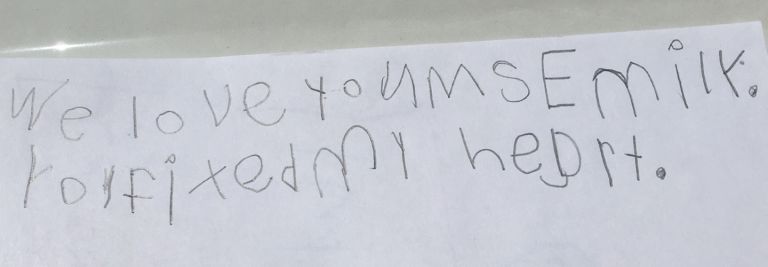 We love you ms Emilk.
Yoy fixed my heart.